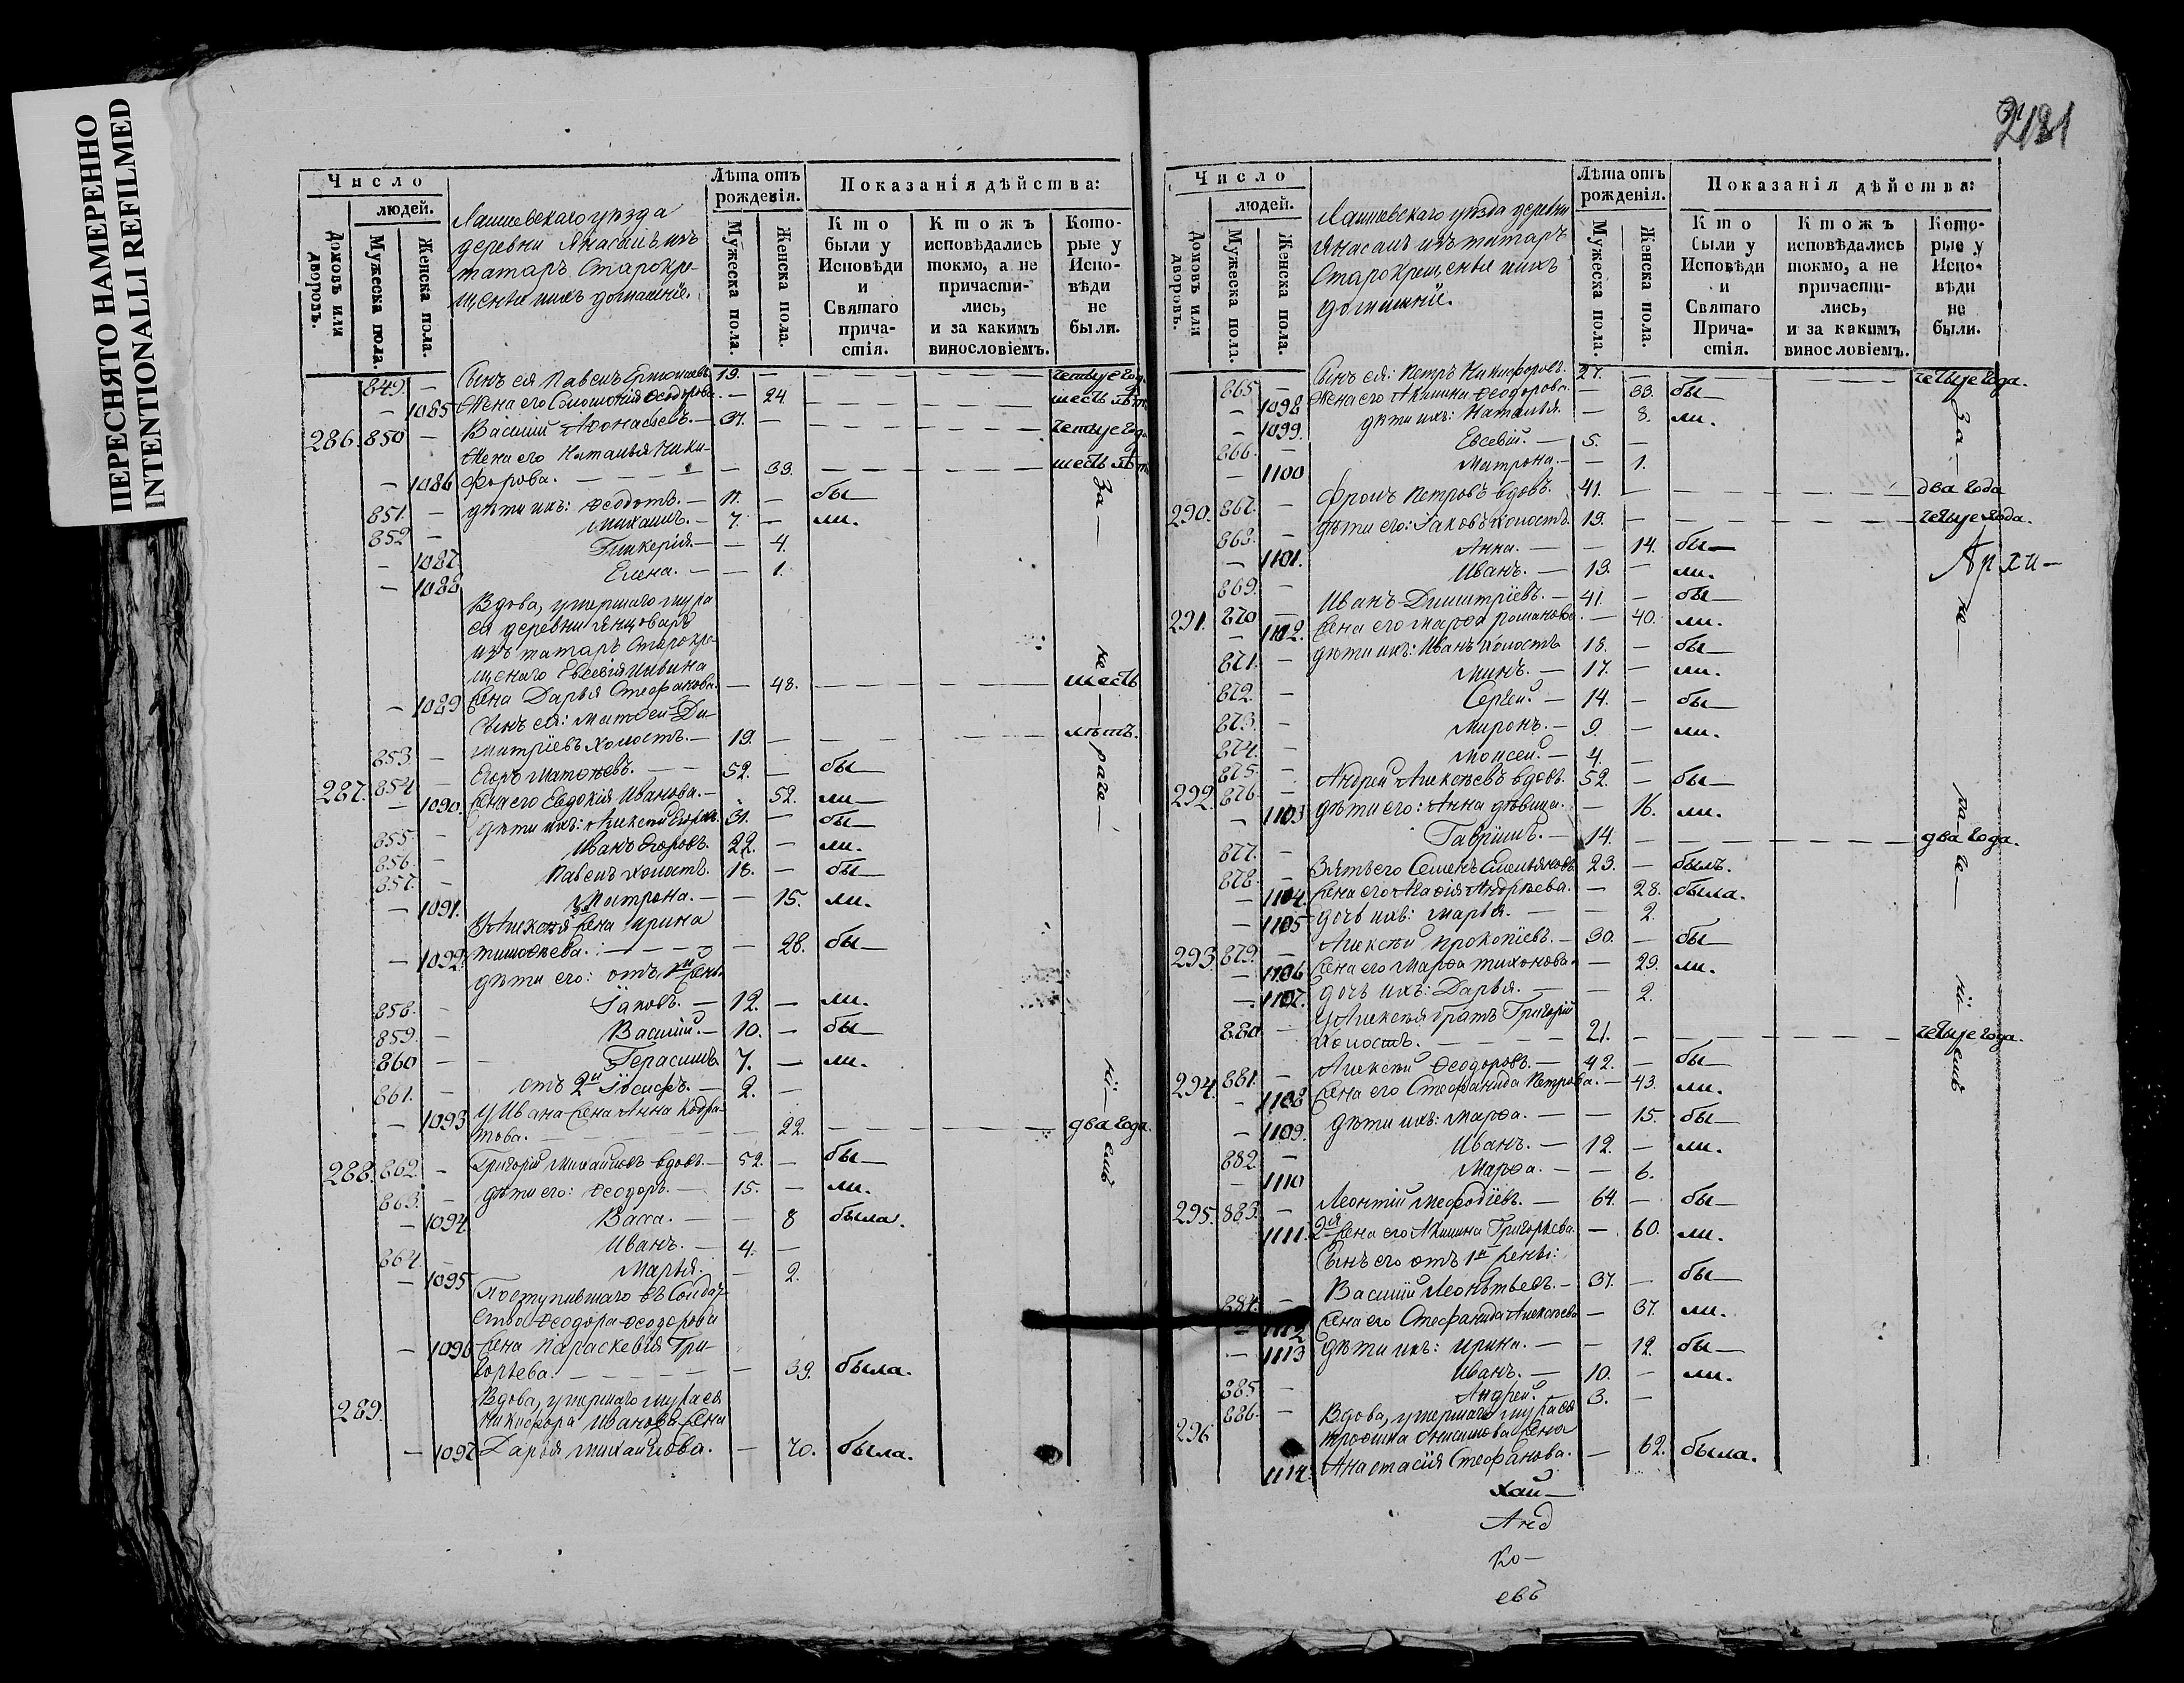 ПЕРЕСНЯТО НАМЕРЕННО
INTENTIONALLI REFILMED
Число
людей.
Домовъ или дворовъ.
Мужеска пола
Женска пола.
Лаишевскаго уѣзда
деревни Янасалъ изъ
татаръ Старокре-
щеныи ихъ домашніе.
Лѣта отъ рожденія.
Мужеска пола.
Женска пола.
Показанія дѣйства:
Кто были у Исповѣди и Святаго прича-стія.
Ктожъ исповѣдались токмо, а не причасти-лись, и за какимъ винословіемъ.
Кото-рые у Испо-вѣди не были.
849. — Сынъ ея Павелъ 19. — четыре год.
— 1085 Жена его Соломонія Ѳеодорова. — 24. шесть лѣт
286. 850 — Василій Аѳонасьевъ. — 37. — четыре год
Жена его Наталья Ники-
— 1086 форова. — 33. шесть лѣт
851. — дѣти ихъ: Ѳеодотъ. — 11. — бы—
852 — Михаилъ. — 7. — ли.
— 1087. Гликерія. — — 4.
— 1088 Елена. — — 1.
Вдова, умершаго мужа
ея деревни Янцоваръ
изъ татаръ Старокре-
щенаго Евсевія
— 1089 жена Дарья Стефанова. — 48. шесть
Сынъ ея: Матѳей Ди-
853. — митріевъ холостъ. — 19. — лѣтъ.
287. 854 — Егоръ Матѳѣевъ. — 52. — бы—
— 1090. жена его Евдокія Иванова. — 52. ли—
855 — дѣти ихъ: Алексѣй Егоровъ. 31. — бы—
856. — Иванъ Егоровъ. 22. — ли.
857. — Павелъ холостъ. 18. — бы—
— 1091. Матрона. — — 15. ли.
У Алексѣя 2я жена Ирина
— 1092. Тимоѳѣева. — 28. бы—
дѣти его: отъ 1й жены
858. — Іаковъ. — 12. — ли.
859. — Василій. — 10. — бы—
860 — Герасимъ. 7. — ли.
861. — отъ 2й Іосифъ. — 2. —
— 1093 У Ивана жена Анна Кодра-
това. — 22. два года.
288. 862. — Григорій Михайловъ вдовъ. — 52. — бы—
863. — дѣти его: Ѳеодоръ. — 15. — ли.
— 1094. Васса. — — 8 была.
864 — Иванъ. — 4. —
— 1095 Марья. — 2.
Поступившаго въ Солдат-
ство Ѳеодора Ѳеодорова
— 1096 жена Параскевія Гри-
горьева. — 39. была.
289. Вдова, умершаго мужа ея
Никифора Иванова жена
— 1097 Дарья Михайлова. — 70. была.
За— не— раче— нї— емъ
2181
Число
людей.
Домовъ или дворовъ.
Мужеска пола.
Женска пола.
Лаишевскаго уѣзда деревни
Янасалъ изъ татаръ
Старокрещеныи ихъ
домашніе.
Лѣта отъ рожденія.
Мужеска пола.
Женска пола.
Показанія дѣйства:
Кто были у Исповѣди и Святаго Прича-стія.
Ктожъ исповѣдались токмо, а не причасти-лись, и за какимъ винословіемъ.
Кото-рые у Испо-вѣди не были.
865. — Сынъ ея: Петръ Никифоровъ. 27. — четыре года.
— 1098 Жена его Акилина Ѳеодорова. — 33. бы—
— 1099. дѣти ихъ: Наталья. — 8. ли.
866. — Евсевій. — 5. —
— 1100 Матрона. — — 1.
290. 867. — Фролъ Петровъ вдовъ. 41. — два года
868. — дѣти его: Іаковъ холостъ. 19. — четыре года.
— 1101. Анна. — — 14. бы—
869. — Иванъ. — 13. — ли.
291. 870 — Иванъ Димитріевъ. — 41. — бы—
— 1102. жена его Марѳа Романова. — 40. ли.
871. — дѣти ихъ: Иванъ холостъ 18. — бы—
872. — Минъ. — 17. — ли.
873. — Сергей. — 14. — бы—
874. — Миронъ. — 9. — ли.
875. — Моисей. — 4. —
292. 876. — Андрей Алексѣевъ вдовъ. 52. — бы—
— 1103 дѣти его: Анна дѣвица. — 16. ли.
877. — Гаврiилъ. — 14. — два года.
878. — Зять его Семенъ Емельяновъ. 23. — былъ.
— 1104. жена его Агаѳія Андрѣева. — 28. была.
— 1105 дочь ихъ: Марья. — — 2.
293. 879. — Алексѣй Прокопіевъ. — 30. — бы—
— 1106 жена его Марѳа Тихонова. — 29. ли.
— 1107. дочь ихъ: Дарья. — — 2.
880. — У Алексѣя братъ Григорій
холостъ. — 21. — четыре года.
294. 881. — Алексѣй Ѳеодоровъ. — 42. — бы—
— 1108 жена его Стефанида Петрова. — 43. ли.
— 1109. дѣти ихъ: Марѳа. — — 15. бы—
882. — Иванъ. — 12. — ли.
— 1110 Марѳа. — — 6.
295. 883. — Леонтій Меѳодіевъ. — 64. — бы—
1111. 2я жена его Акилина Григорьева. — 60. ли.
Сынъ его отъ 1й жены:
884. — Василій Леонтьевъ. — 37. — бы—
— 1112 жена его Стефанида Алексѣева — 37. ли.
— 1113 дѣти ихъ: Ирина. — — 12. бы—
885. — Иванъ. — 10. — ли.
886. — Андрей. 3. —
296 Вдова, умершаго мужа ея
Трофима Анисимова жена
1114. Анастасія Стефанова. — 62. была.
За— не— ра— че— нї— емъ
Архи—
хай—
Анд
ко—
евъ